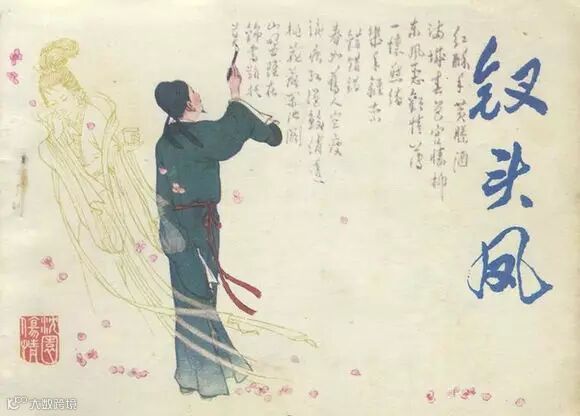 钗头凤
红酥手黄縢酒
满城春色宫墙柳
东风恶欢情薄
一怀愁绪
几年离索
错错错
春如旧人空瘦
泪痕红浥鲛绡透
桃花落闲池阁
山盟虽在
锦书难托
莫
沈園
傷情
大数跨境